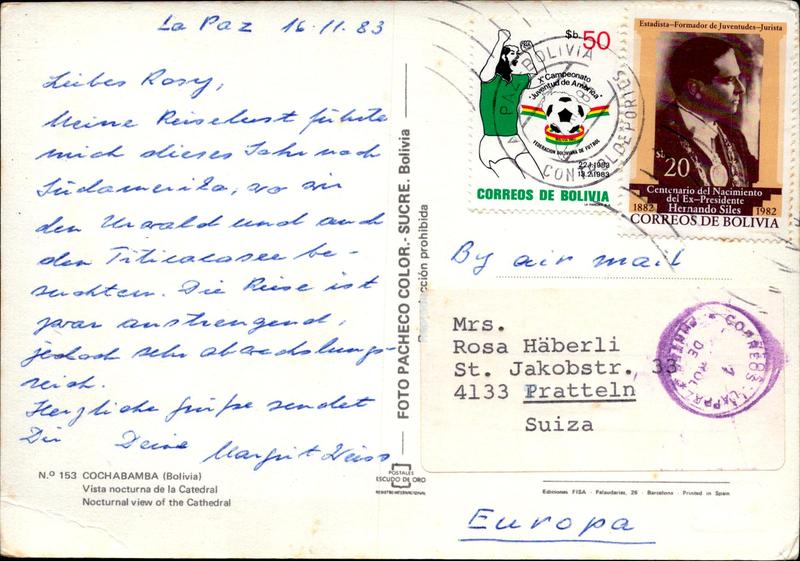 La Paz 16.11.83
Liebes Rosy,
Meine Reiselust führte
mich dieses Jahr nach
Südamerika, wo wir
den Urwald und auch
den Titicacasee be-
suchten. Die Reise ist
zwar anstrengend,
jedoch sehr abwechslungs-
reich.
Herzliche Grüße sendet
Dir Deine Margrit Weiss
N.º 153 COCHABAMBA (Bolivia)
Vista nocturna de la Catedral
Nocturnal view of the Cathedral
FOTO PACHECO COLOR.- SUCRE. Bolivia
prohibida
POSTALES
ESCUDO DE ORO
REGISTRO INTERNACIONAL
$b. 50
Xº Campeonato
"Juventud de America"
FEDERACION BOLIVIANA DE FUTBOL
22.1.1983
13.2.1983
CORREOS DE BOLIVIA
BOLIVIA
Estadista-Formador de Juventudes-Jurista
$b 20
Centenario del Nacimiento
del Ex-Presidente
1882 Hernando Siles 1982
CORREOS DE BOLIVIA
By air mail
Mrs.
Rosa Häberli
St. Jakobstr. 33
4133 Pratteln
Suiza
CORREOS LA PAZ
4
Ediciones FISA - Palaudarias, 26 - Barcelona - Printed in Spain
Europa